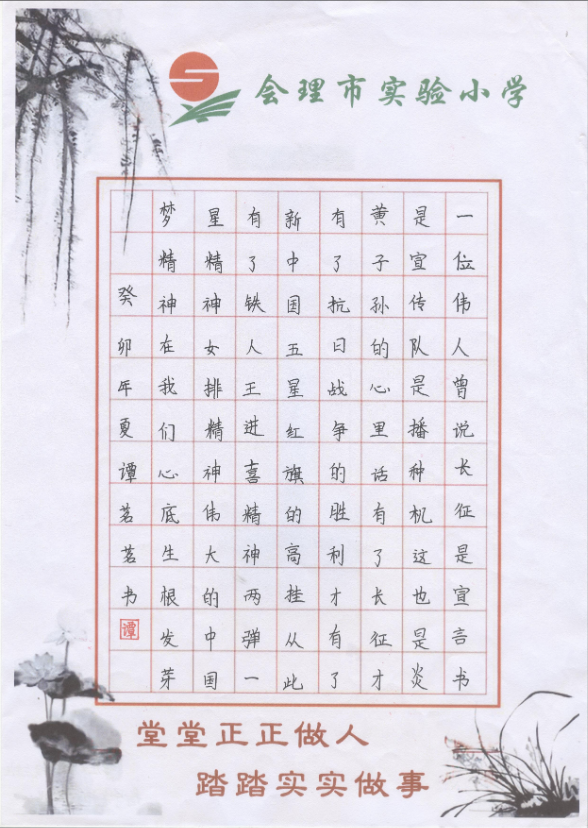 会理市实验小学
一位伟人曾说长征是宣言书
是宣传队是播种机这也是炎
黄子孙的心里话有了长征才
有了抗日战争的胜利才有了
新中国五星红旗的高高挂从此
有了铁人王进喜精神两弹一
星精神女排精神伟大的中国
梦精神在我们心底生根发芽
癸卯年夏谭茗茗书
谭
堂堂正正做人
踏踏实实做事